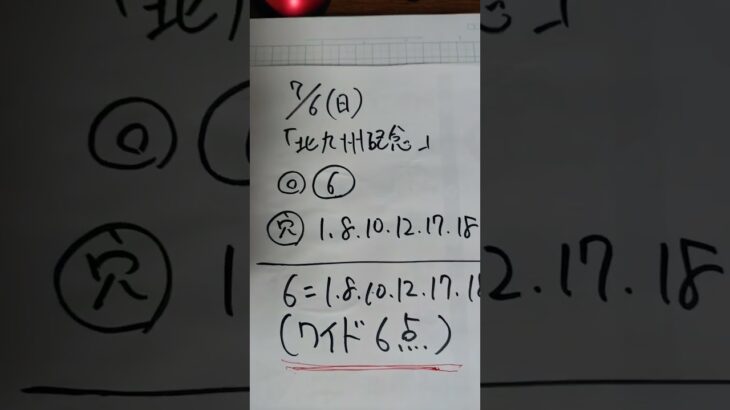 7/6(日)
「北九州記念」
◎⑥
㊀穴 1.8.10.12.17.18
6=1.8.10.12.17.18
(ワイド6点)